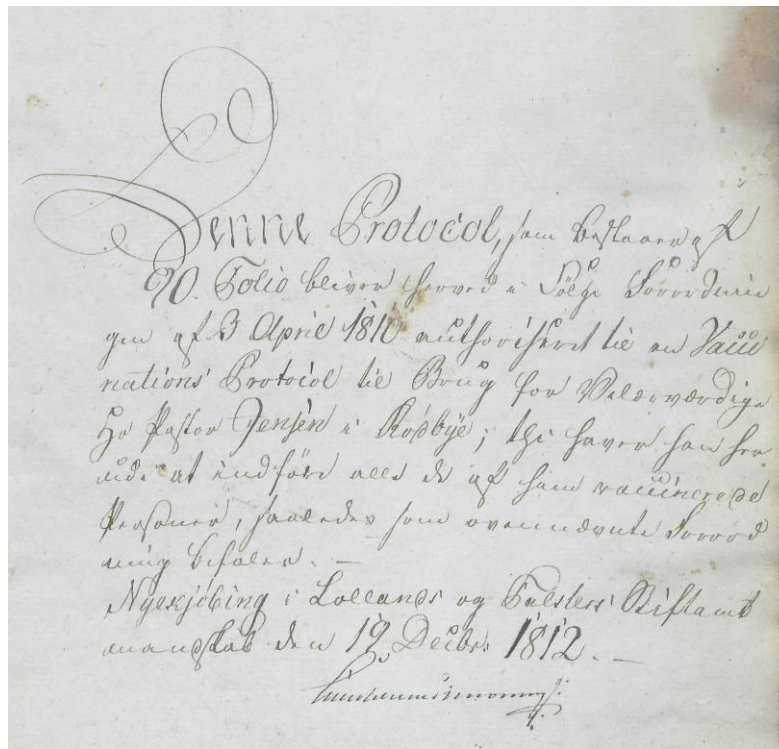 Denne Protocol, som bestaaer af
90. Folio bliver herved i Fölge Forordnin
gen af 3 April 1810 authoriseret til en Vacci
nations Protocol til Brug for Velærværdige
Hr Pastor Jensen i Rödbÿe; thi haver han her
udi at indföre alle de af ham vaccincerede
Personer, saaledes som ovennævnte Forord
ning befaler. —
Nyekjöbing i Lollands og Falsters Stiftamt
mandskab den 19 Decbr: 1812. —